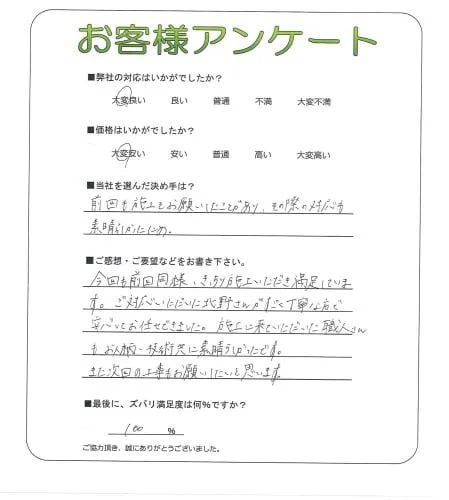 お客様アンケート
■弊社の対応はいかがでしたか？
大変良い 良い 普通 不満 大変不満
■価格はいかがでしたか？
大変安い 安い 普通 高い 大変高い
■当社を選んだ決め手は？
前回も施工をお願いしたことがあり、その際の対応も
素晴らしかったため。
■ご感想・ご要望などをお書き下さい。
今回も前回同様、きっちり施工いただき満足していま
す。ご対応いただいた北野さんがすごく丁寧な方で
安心してお任せできました。施工に来ていただいた職人さん
もお人柄・技術共に素晴らしかったです。
また次回の工事もお願いしたいと思います。
■最後に、ズバリ満足度は何％ですか？
100 %
ご協力頂き、誠にありがとうございました。